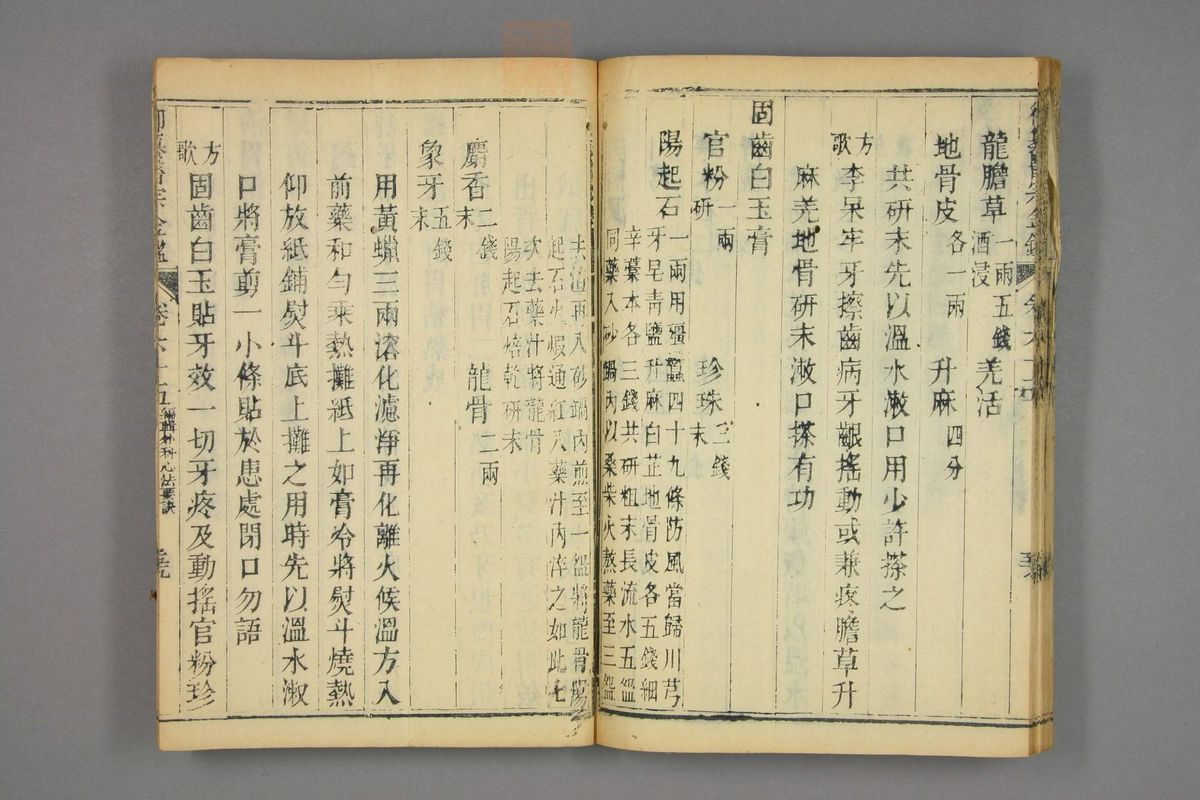 龍膽草一兩五錢酒浸 羌活
地骨皮各一兩 升麻四分
共研末先以溫水漱口用少許搽之
方歌 李杲牢牙擦齒病牙齦搖動或兼疼膽草升
麻羌地骨研末漱口搽有功
固齒白玉膏
官粉一兩研 珍珠三錢末
陽起石一兩用殭蠶四十九條防風當歸川芎
牙皂青鹽升麻白芷地骨皮各五錢細
辛藁本各三錢共研粗末長流水五鍾
同藥入砂鍋內以桑柴火熬藥至三鍾
去渣再入砂鍋內煎至一鍾將龍骨陽
起石火煆通紅入藥汁內淬之如此七
次去藥汁將龍骨
陽起石焙乾研末
麝香二錢末 龍骨二兩
象牙五錢末
用黃蠟三兩溶化濾淨再化離火候溫方入
前藥和勻乘熱攤紙上如膏冷將熨斗燒熱
仰放紙鋪熨斗底上攤之用時先以溫水漱
口將膏剪一小條貼於患處閉口勿語
方歌 固齒白玉貼牙效一切牙疼及動搖官粉珍
醫宗金鑑 卷六十五 編輯外科心法要訣